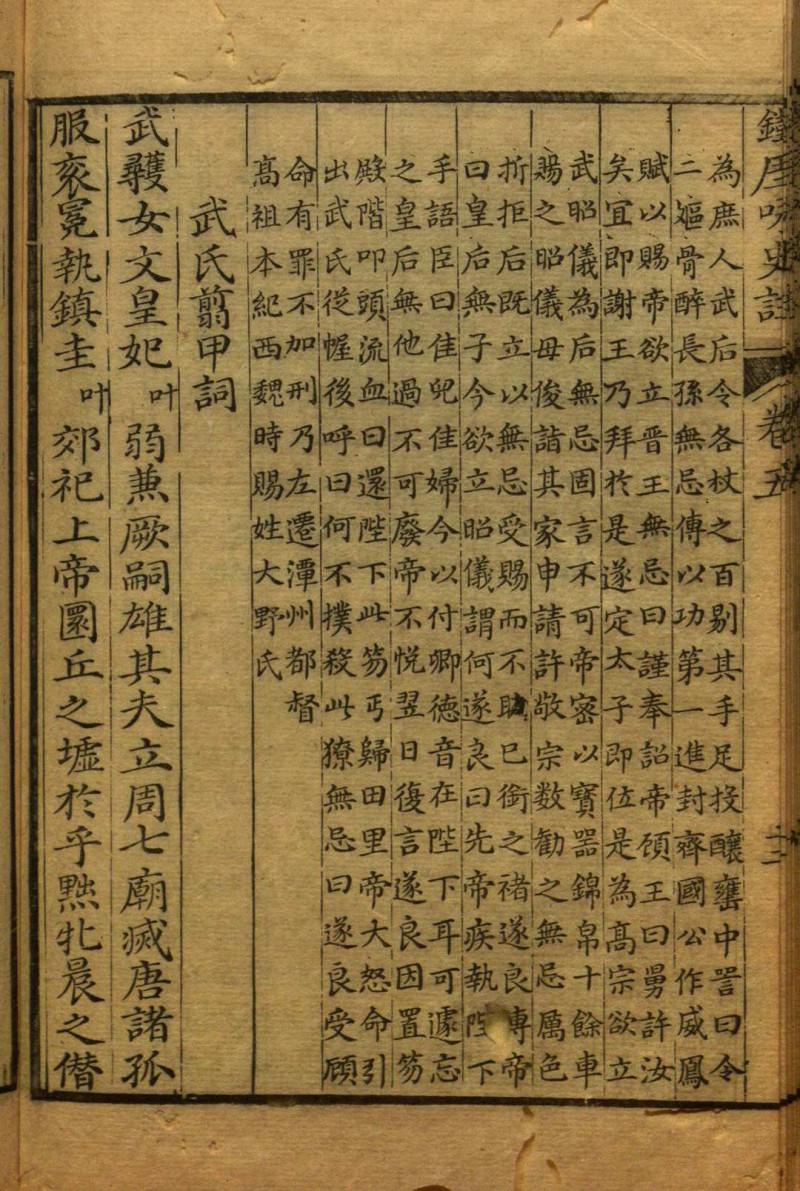 鐵厓咏史註 卷五 十二
為庶人武后令各杖之百剔其手足投釀甕中詈曰令
二嫗骨醉長孫無忌傳以功第一進封齊國公作威鳳
賦以賜帝欲立晉王無忌曰謹奉詔帝顧王曰舅許汝
矣宜即謝王乃拜於是遂定太子即位是為高宗欲立
武昭儀為后無忌固言不可帝密以寶器錦帛十餘車
賜之昭儀母復詣其家申請許敬宗数勸之無忌厲色
折拒后既立以無忌受賜而不助已銜之褚遂良傳帝
曰皇后無子今欲立昭儀謂何遂良曰先帝疾執陛下
手語臣曰佳兒佳婦今以付卿德音在陛下耳可遽忘
之皇后無他過不可廢帝不悅翌日復言遂良因置笏
殿階叩頭流血曰還陛下此笏丐歸田里帝大怒命引
出武氏從幄後呼曰何不撲殺此獠無忌曰遂良受顧
命有罪不加刑乃左遷潭州都督
高祖本紀西魏時賜姓大野氏
武氏翦甲詞
武彠女文皇妃叶弱燕厥嗣雄其夫立周七廟滅唐諸孤
服衮冕執鎮圭叶郊祀上帝圜丘之墟於乎黙牝晨之僣